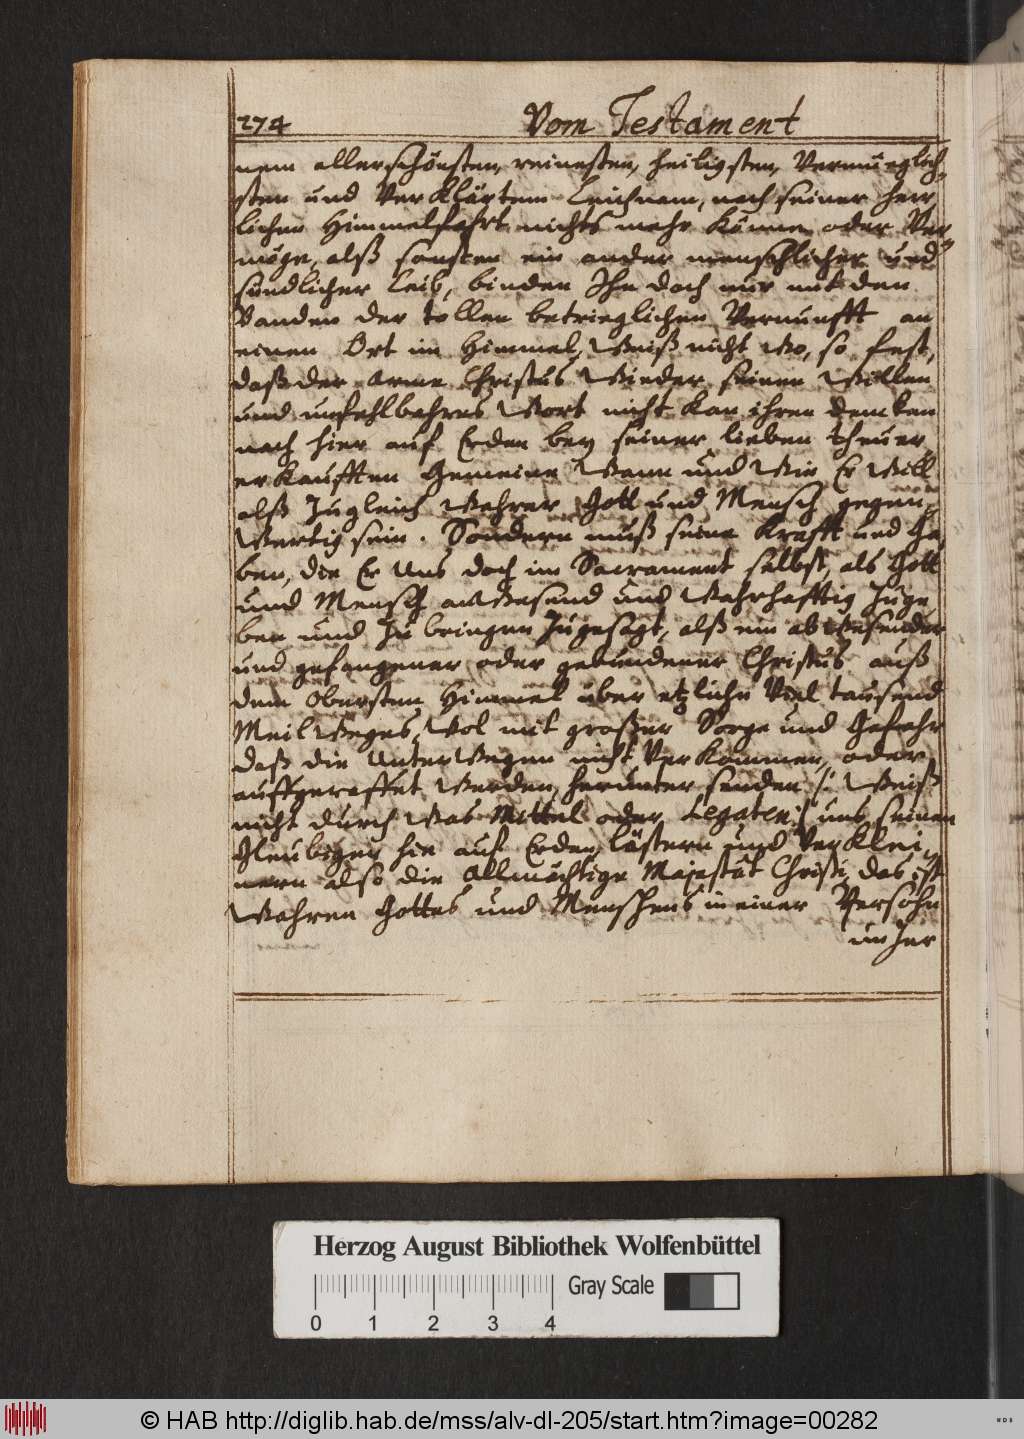 274
Vom Testament
nem allerschönsten, reinesten, heiligsten, Vernünfftig-
sten und Verklärtem Leichnam, nach seiner herr
lichen Himmelfahrt nichts mehr könne oder Ver-
möge, alß sonsten ein ander menschlicher und
sündlicher Leib, binden Ihn doch nur mit den
Banden der tollen betrieglichen Vernunfft an
einen Ort im Himmel, Weiß nicht Wo, so fest,
daß der Arme Christus Wieder seinen Willen
und unfehlbahres Wort nicht kan ihren dencken
nach hier auf Erden bey seiner lieben theuer
erkaufften Gemeine Wann und Wie Er Will
alß Zugleich Wahrer Gott und Mensch gegen-
Wertig sein. Sondern muß seine Krafft und Ga,
ben, die Er Uns doch im Sacrament selbst, als Gott
und Mensch anWesend und Wahrhafftig Zuge,
ben und Zu bringen Zugesagt, alß ein abWesender
und gefangener oder gebundener Christus auß
dem Obersten Himmel über etzliche Viel tausend
MeilWeges, Wol mit großer Sorge und Gefahr
daß die UnterWegen nicht Verkommen, oder
auffgeraffet Werden, herunter senden /: Weiß
nicht durch Was Mittel oder Legaten :/ uns seinen
Gleubigen hie auf Erden, lästern und Verklei,
nern also die Allmächtige Majestät Christi, das ist
Wahren Gottes und Menschens in einer Persohn
im Zer
Herzog August Bibliothek Wolfenbüttel
Gray Scale
0 1 2 3 4
© HAB http://diglib.hab.de/mss/alv-dl-205/start.htm?image=00282